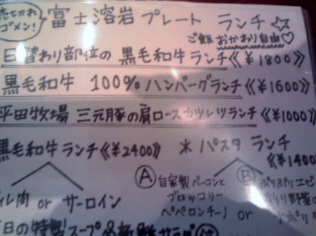 売り切れ
ゴメン! 富士溶岩 プレート ランチ ☆☆
ご飯 おかわり自由♡
日替わり部位の 黒毛和牛ランチ《¥1800》
黒毛和牛 100% ハンバーグランチ《¥1600》
平田牧場 三元豚の肩ロースカツレツランチ《¥1000》
黒毛和牛ランチ《¥2400》 * パスタ ランチ
《¥1400》
ヒレ肉 or サーロイン Ⓐ 自家製ベーコンと
ブロッコリー
ペペロンチーノ or
Ⓑ ぷりぷりエビ
本日の特製スープ&新鮮サラダ付